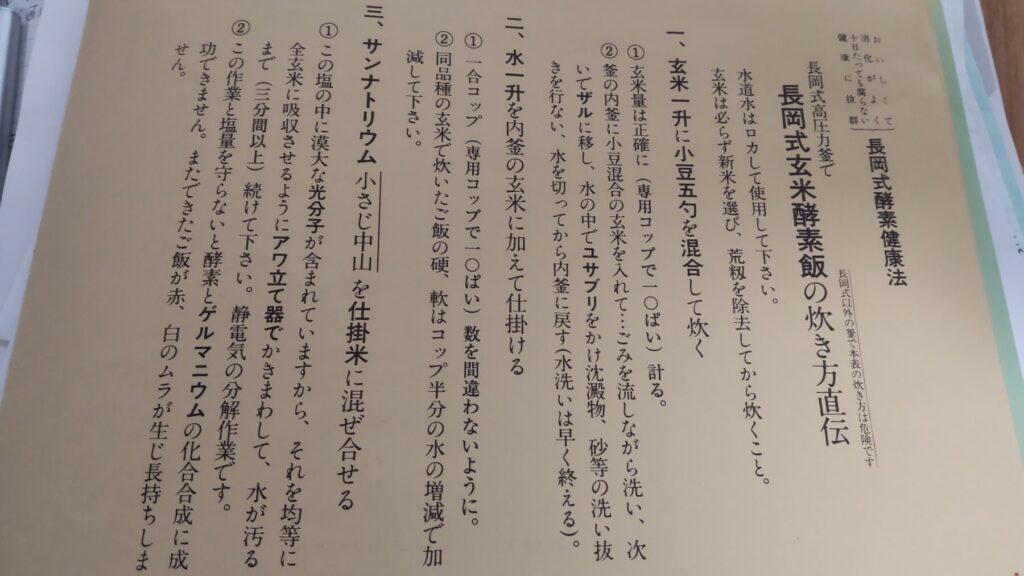 おいしくて
消化がよく
十日たっても腐らない
健康に抜群
長岡式酵素健康法
長岡式高圧力釜で
長岡式玄米酵素飯の炊き方直伝
長岡式以外の釜で本表の炊き方は危険です
水道水はロカして使用して下さい。
玄米は必ず新米を選び、荒籾を除去してから炊くこと。
一、玄米一升に小豆五勺を混合して炊く
① 玄米量は正確に（専用コップで一〇ぱい）計る。
② 釜の内釜に小豆混合の玄米を入れて…ごみを流しながら洗い、次
いでザルに移し、水の中でユサブリをかけ沈澱物、砂等の洗い抜
きを行ない、水を切ってから内釜に戻す（水洗いは早く終える）。
二、水一升を内釜の玄米に加えて仕掛ける
① 一合コップ（専用コップで一〇ぱい）数を間違わないように。
② 同品種の玄米で炊いたご飯の硬、軟はコップ半分の水の増減で加
減して下さい。
三、サンナトリウム小さじ中山を仕掛米に混ぜ合せる
① この塩の中に漠大な光分子が含まれていますから、それを均等に
全玄米に吸収させるようにアワ立て器でかきまわして、水が汚る
まで（三分間以上）続けて下さい。静電気の分解作業です。
② この作業と塩量を守らないと酵素とゲルマニウムの化合合成に成
功できません。またできたご飯が赤、白のムラが生じ長持ちしま
せん。